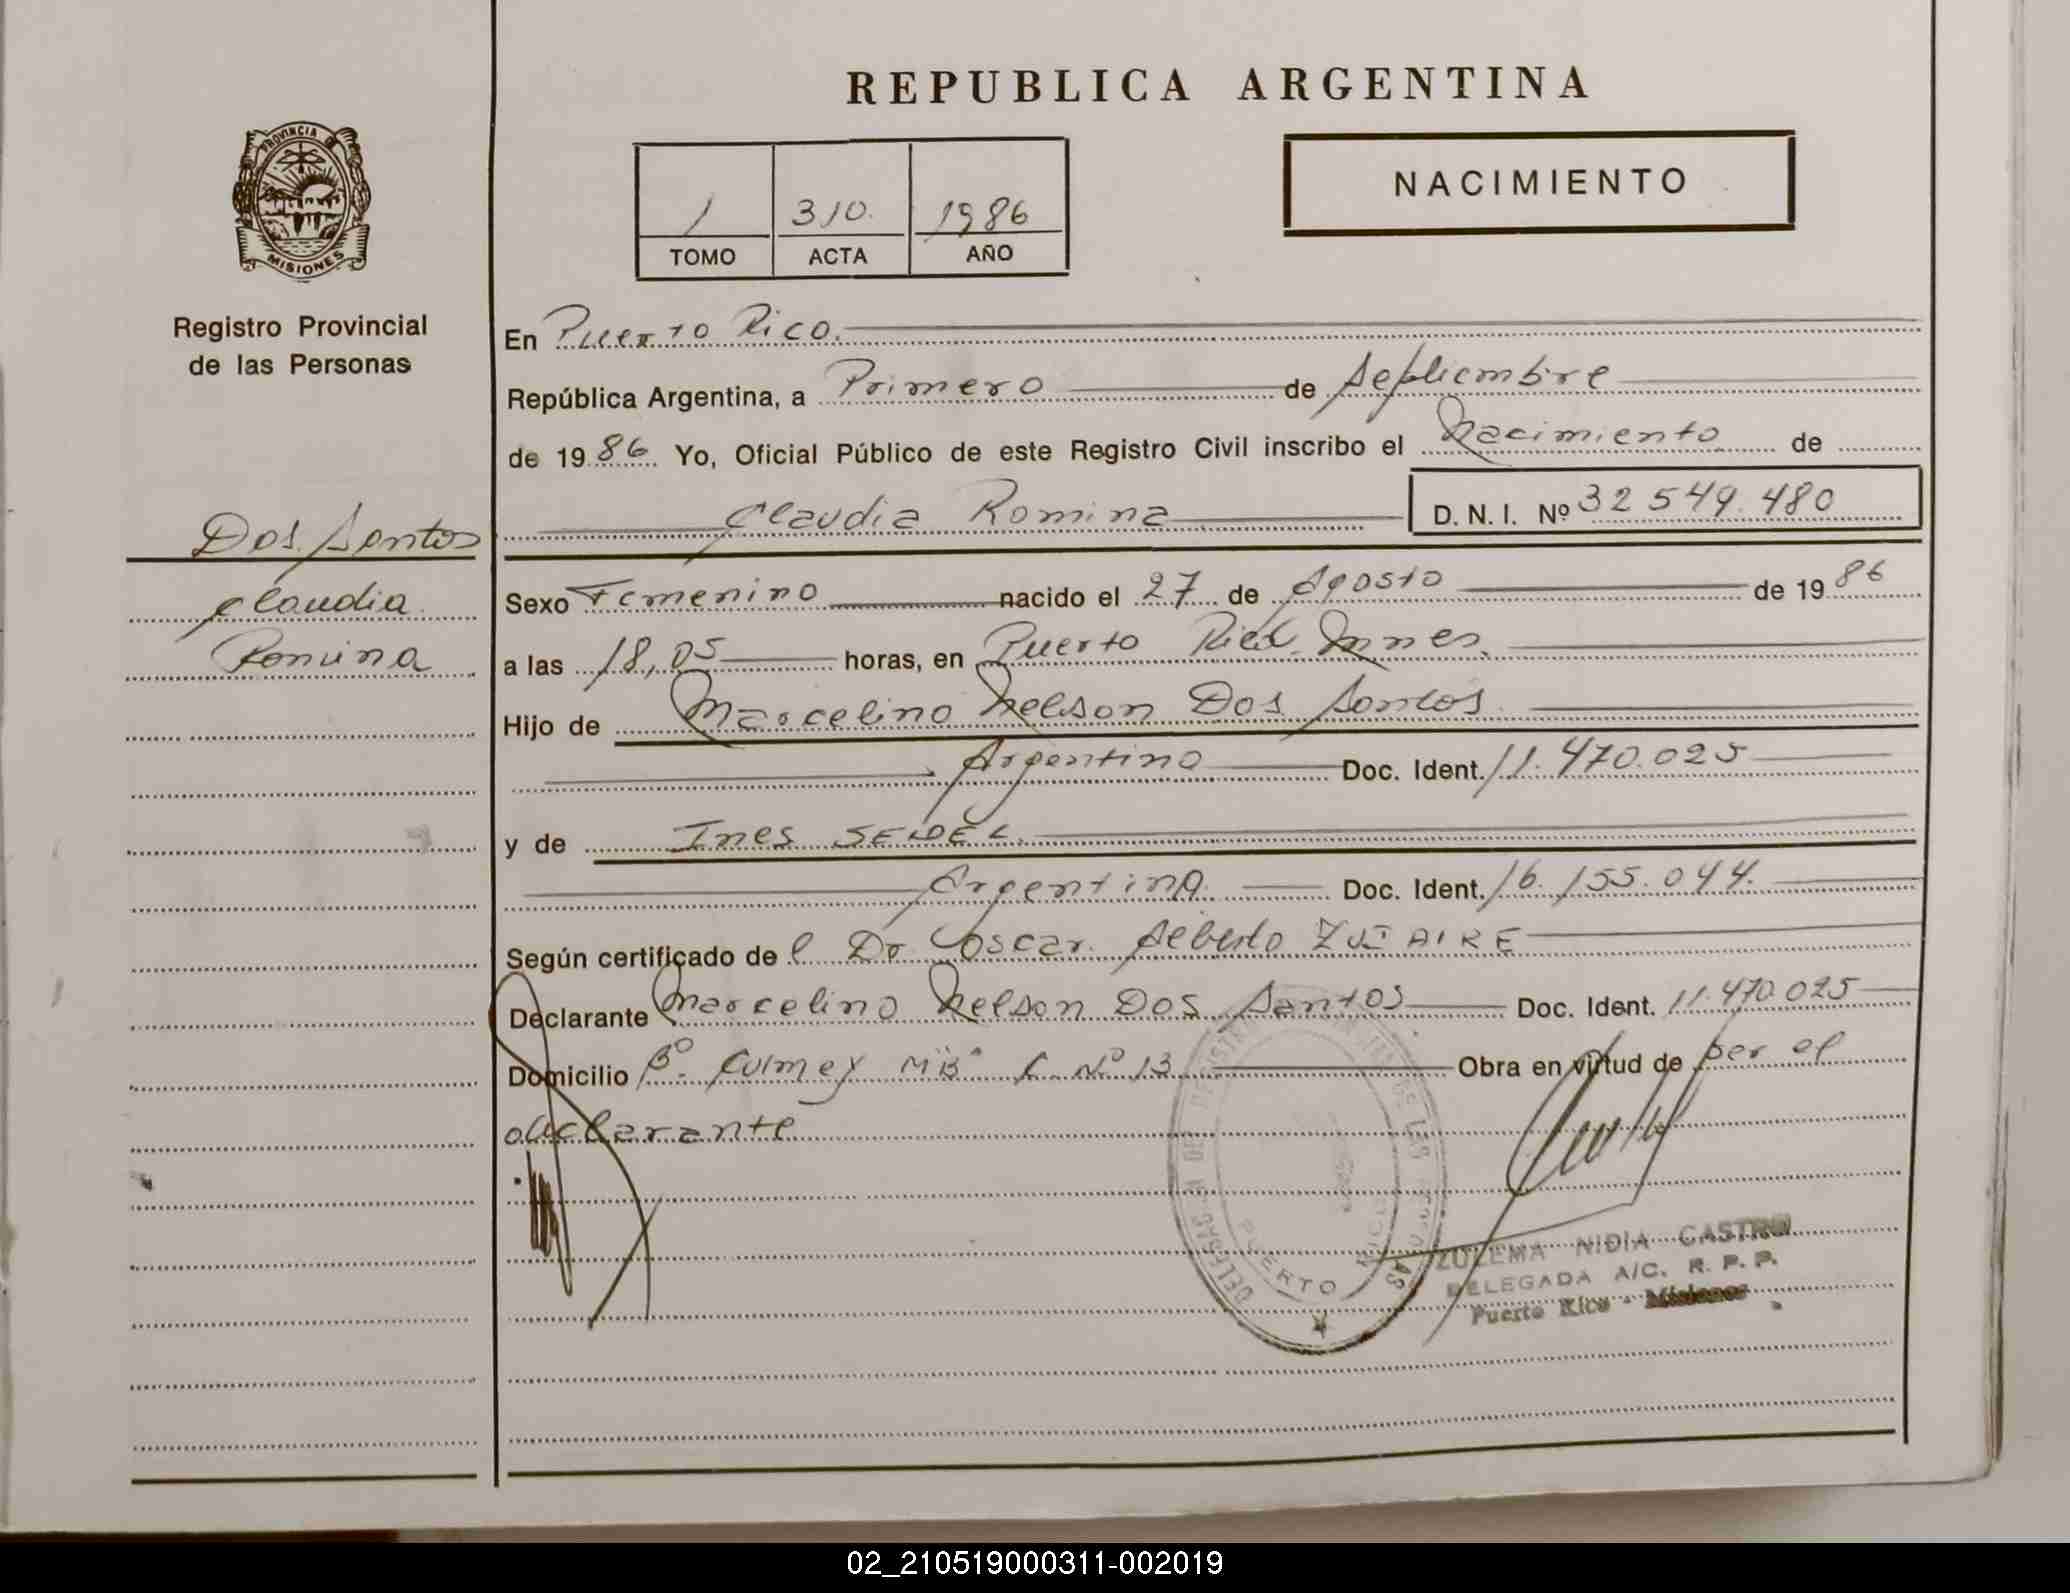 REPUBLICA ARGENTINA
PROVINCIA DE
MISIONES
Registro Provincial
de las Personas
1 310. 1986
TOMO ACTA AÑO
NACIMIENTO
En Puerto Rico.
República Argentina, a Primero de Septiembre
de 1986 Yo, Oficial Público de este Registro Civil inscribo el Nacimiento de
Claudia Romina D. N. I. Nº 32 549.480
Dos Santos
Claudia
Romina
Sexo Femenino nacido el 27 de Agosto de 1986
a las 18,05 horas, en Puerto Rico.
Hijo de Marcelino Nelson Dos Santos
Argentino Doc. Ident. 11.470.025
y de Ines SEIDEL.
Argentina. Doc. Ident. 16.155.044.
Según certificado de l Dr Oscar Alberto
Declarante Marcelino Nelson Dos Santos Doc. Ident. 11.470.025
Domicilio Bº. Culmey C. Nº 13 Obra en virtud de ser el
declarante
DELEGACION DEL REGISTRO PROVINCIAL DE LAS PERSONAS
PUERTO RICO
ZULEMA NIDIA CASTRO
DELEGADA A/C. R. P. P.
Puerto Rico - Misiones
02_210519000311-002019